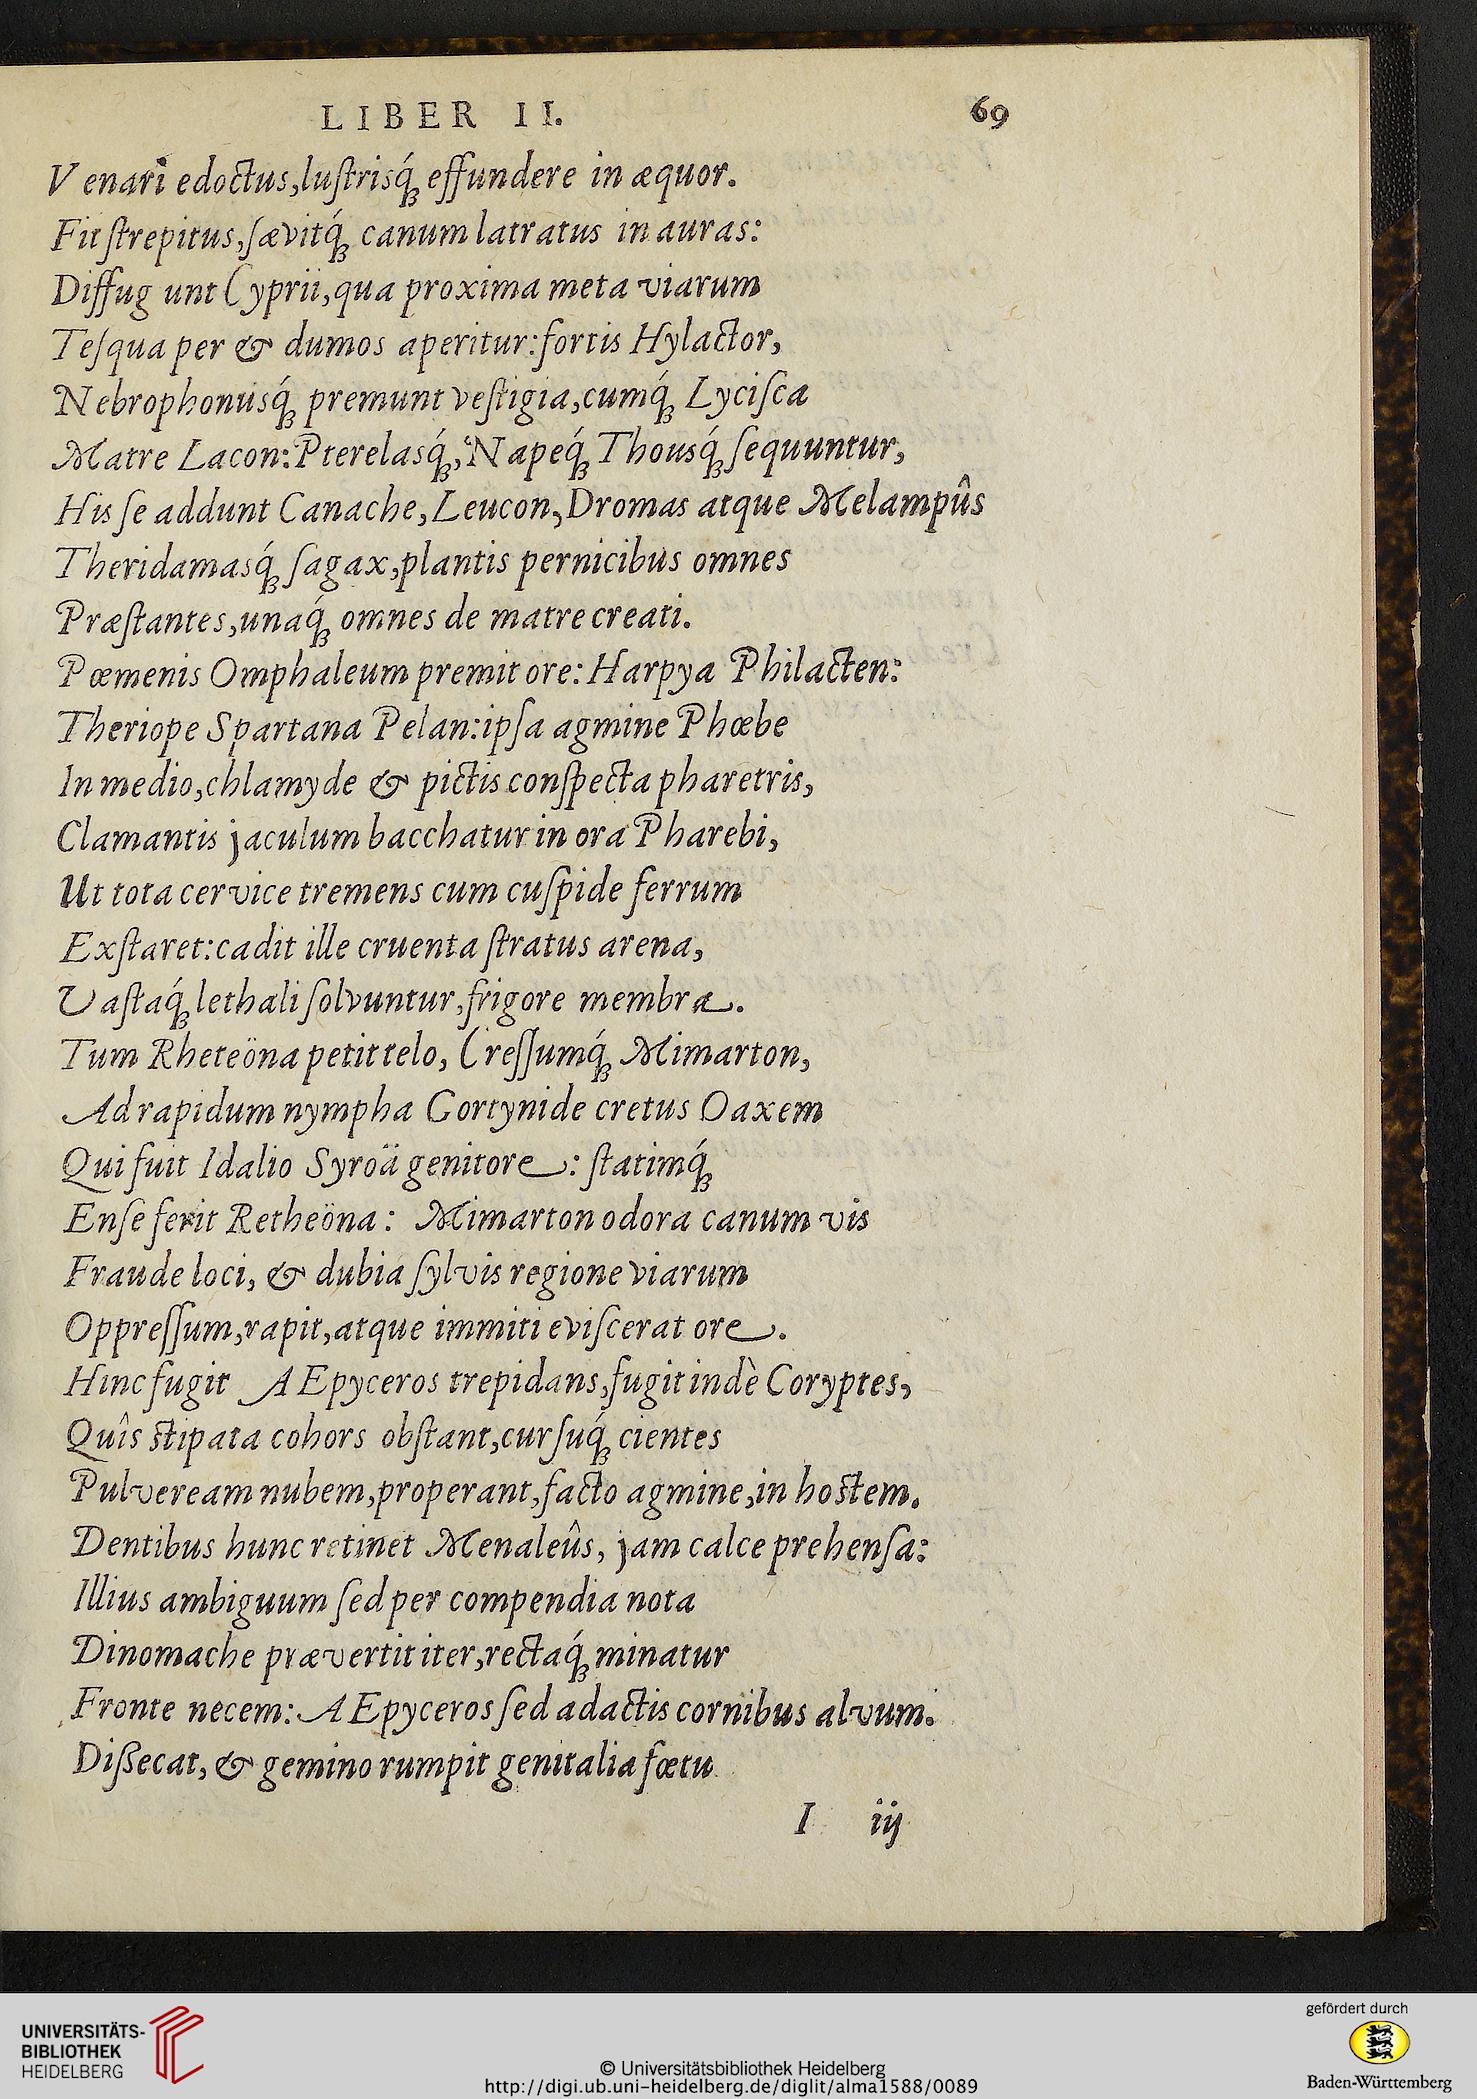 LIBER II. 69
Venari edoctus, lustrisq́ꝫ effundere in æquor.
Fit strepitus, sævitq́ꝫ canum latratus in auras:
Diffugunt Cyprii, qua proxima meta viarum
Tesqua per & dumos aperitur: fortis Hylactor,
Nebrophonusq́ꝫ premunt vestigia, cumq́ꝫ Lycisca
Matre Lacon: Pterelasq́ꝫ, Napeq́ꝫ Thousq́ꝫ sequuntur,
His se addunt Canache, Leucon, Dromas atque Melampûs
Theridamasq́ꝫ sagax, plantis pernicibus omnes
Præstantes, unaq́ꝫ omnes de matre creati.
Pœmenis Omphaleum premit ore: Harpya Philacten:
Theriope Spartana Pelan: ipsa agmine Phœbe
In medio, chlamyde & pictis conspecta pharetris,
Clamantis jaculum bacchatur in ora Pharebi,
Ut tota cervice tremens cum cuspide ferrum
Exstaret: cadit ille cruenta stratus arena,
Vastaq́ꝫ lethali solvuntur, frigore membra.
Tum Rheteöna petit telo, Cressumq́ꝫ Mimarton,
Ad rapidum nympha Gortynide cretus Oaxem
Qui fuit Idalio Syroä genitore: statimq́ꝫ
Ense ferit Retheöna: Mimarton odora canum vis
Fraude loci, & dubia sylvis regione viarum
Oppressum, rapit, atque immiti eviscerat ore.
Hinc fugit AEpyceros trepidans, fugit indè Coryptes,
Quîs stipata cohors obstant, cursuq́ꝫ cientes
Pulveream nubem, properant, facto agmine, in hostem.
Dentibus hunc retinet Menaleûs, jam calce prehensa:
Illius ambiguum sed per compendia nota
Dinomache prævertit iter, rectaq́ꝫ minatur
Fronte necem: AEpyceros sed adactis cornibus alvum.
Dißecat, & gemino rumpit genitalia fœtu
I iij
UNIVERSITÄTS-
BIBLIOTHEK
HEIDELBERG
© Universitätsbibliothek Heidelberg
http://digi.ub.uni-heidelberg.de/diglit/alma1588/0089
gefördert durch
Baden-Württemberg